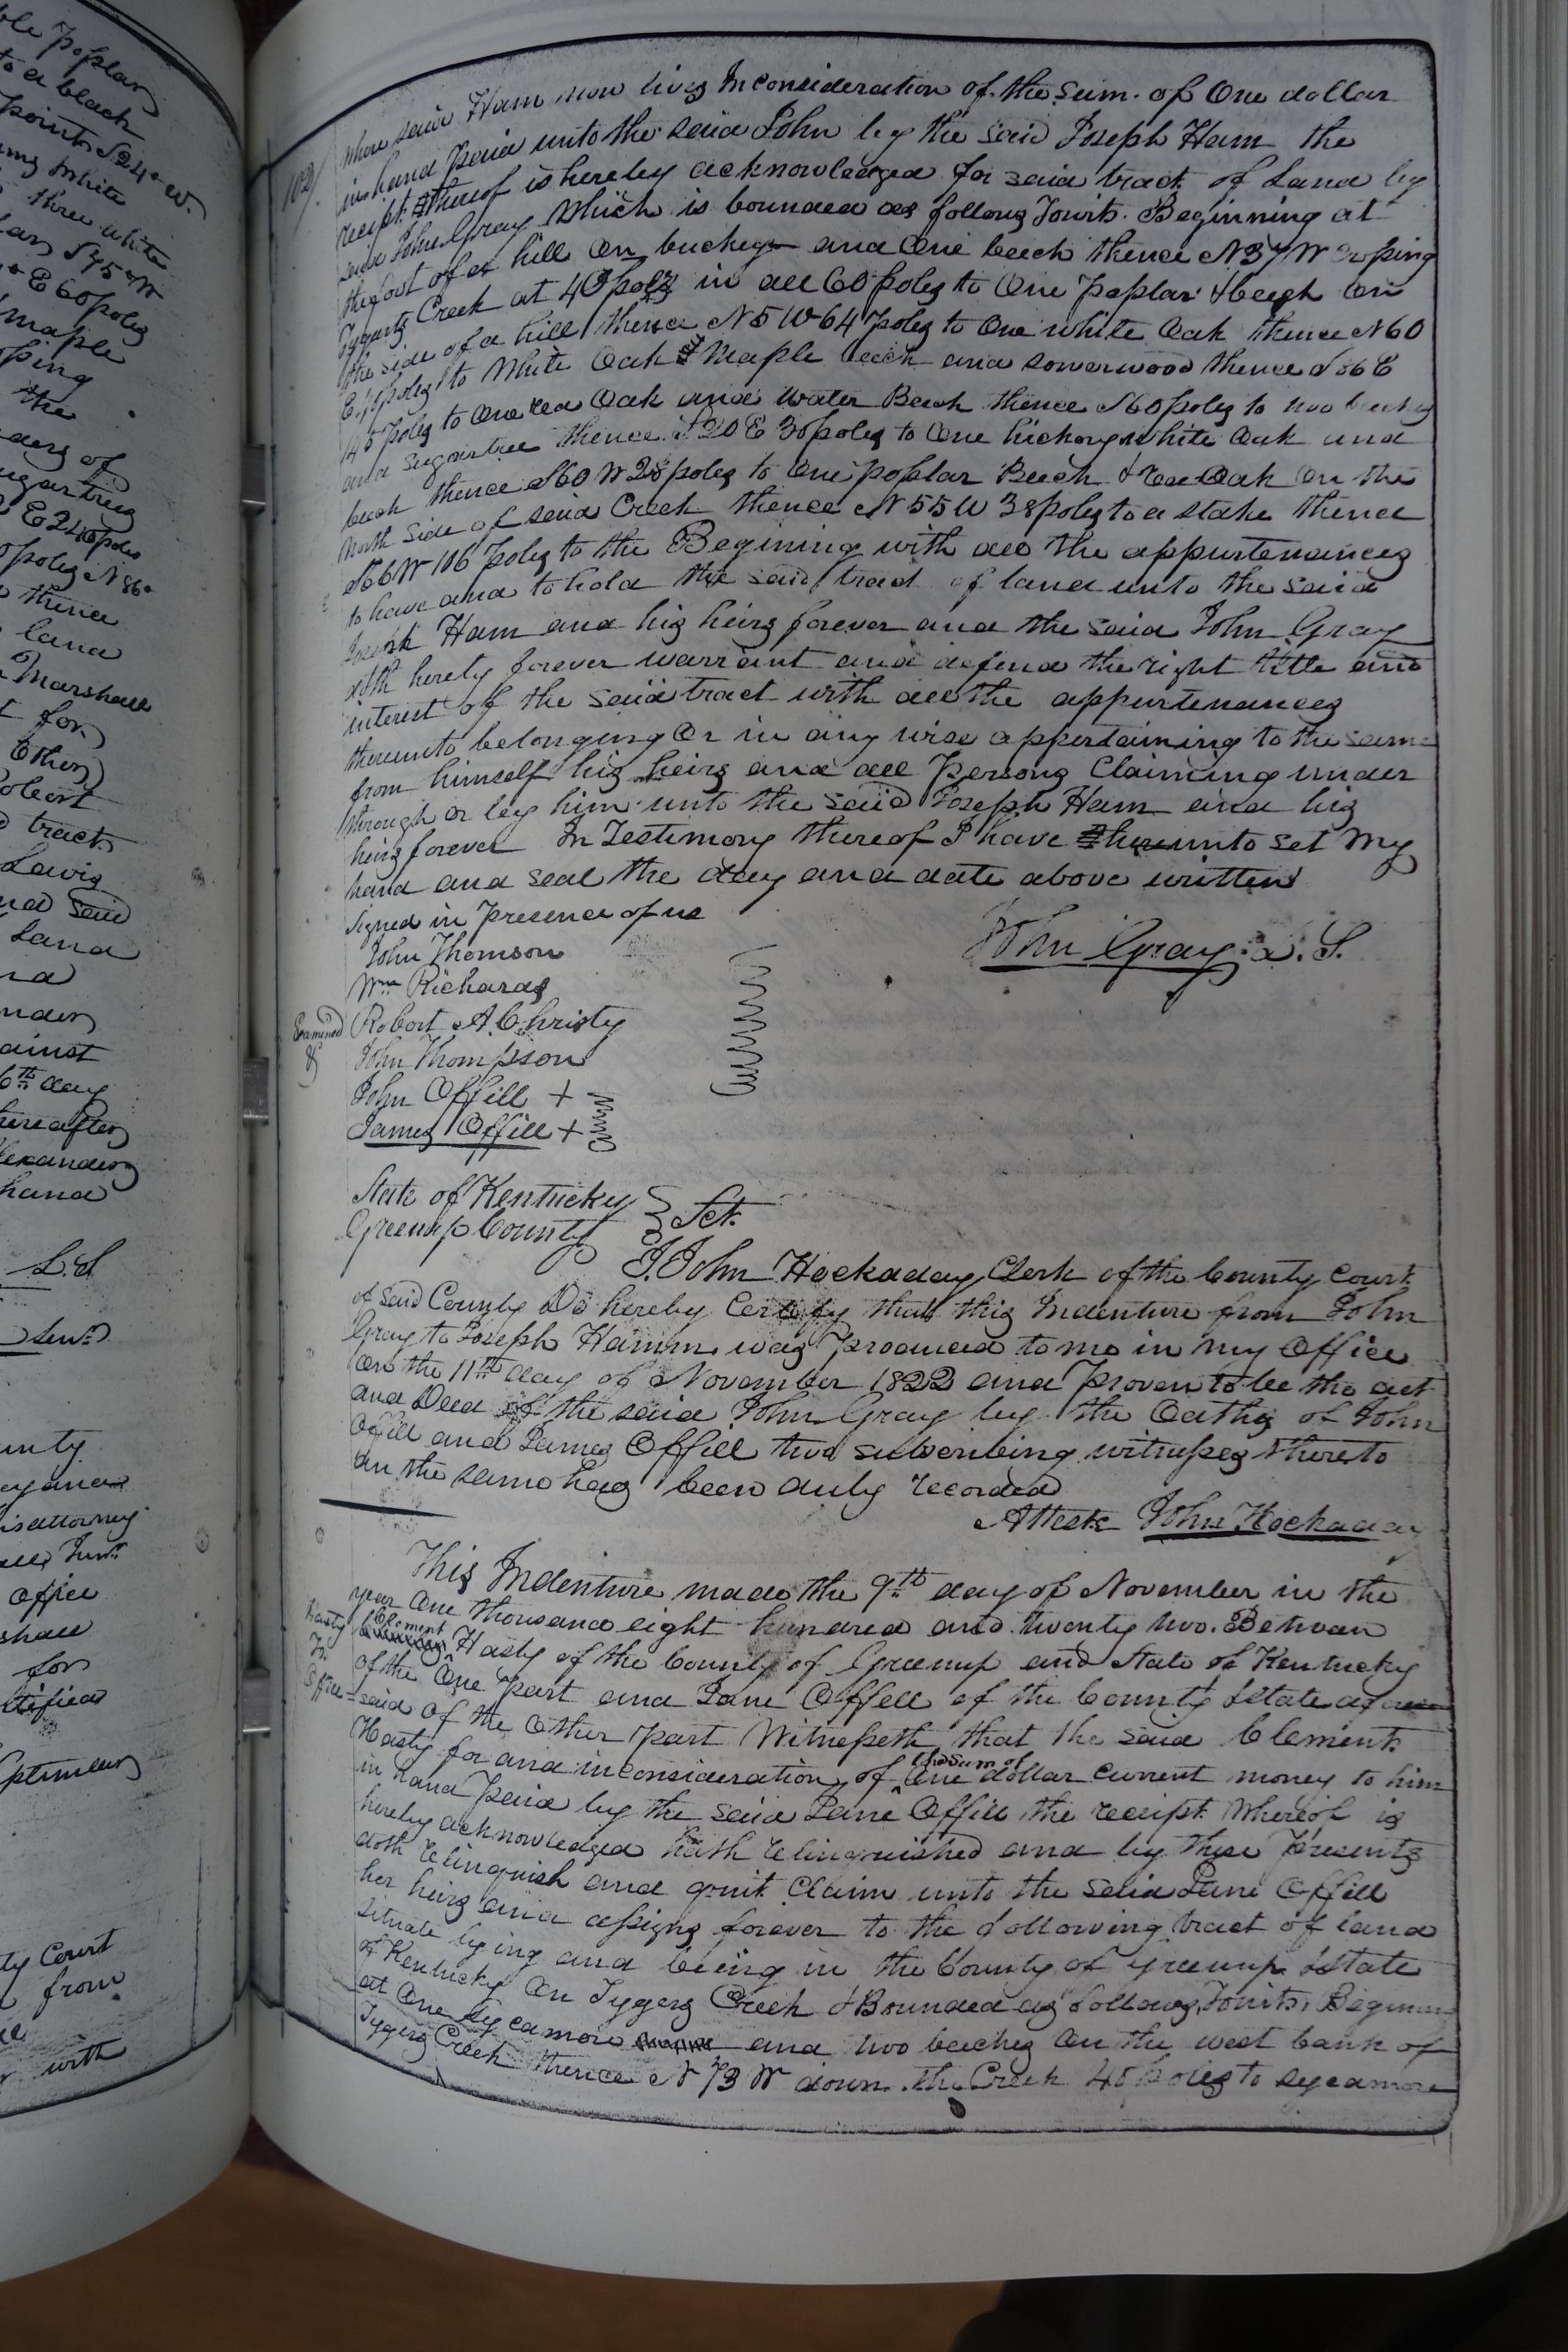 ble poplar
to a black
points S 24° W.
white
three white
S 45 W
E 60 poles
maple
the
ders of
sugartree
E 240 poles
poles N 86°
thence
land
Marshall
t for
Other
Robert
tract
Lewis
said
Land
nder
ainst
6th day
hereafter
lexander
hand
L.S
unty
his attorney
office
shall
for
tified
ty Court
from
with
102
where said Ham now lives In consideration of the Sum of One dollar
in hand paid unto the said John by the said Joseph Ham the
receipt thereof is hereby acknowledged for said tract of Land by
said John Gray Which is bounded as follows Towit. Beginning at
the foot of a hill on buckeye and One beech thence N 37 W crossing
Tygarts Creek at 40 poles in all 60 poles to One Poplar & beech on
the side of a hill thence N 5 W 64 poles to One white Oak thence N 60
E poles to White Oak Maple beech and sowerwood thence S 86 E
145 poles to one red Oak and water Beech thence S 60 poles to two
and sugartree thence S 20 E 30 poles to One hickory white Oak and
beech thence S 60 W 28 poles to one poplar Beech & red Oak on the
North side of said Creek thence N 55 W 38 poles to a stake thence
S 66 W 106 poles to the Begining with all the appurtenances
to have and to hold the said tract of land unto the said
Joseph Ham and his heirs forever and the said John Gray
doth hereby forever warrant and defend the right title and
interest of the said tract with all the appurtenances
thereunto belonging Or in any wise appertaining to the same
from himself his heirs and all Persons Claiming under
through or by him unto the said Joseph Ham and his
heirs forever In Testimony thereof I have hereunto set my
hand and seal the day and date above written
Signed in Presence of us
John Gray L.S.
John Thomson
Wm Richards
Robert A. Christy
Examined
John Thompson
John Offill +
James Offill +
State of Kentucky
Greenup County Sct.
I John Hockaday Clerk of the County Court
of said County Do hereby Certify that this Indenture from John
Gray to Joseph Hamm was produced to me in my Office
on the 11th day of November 1822 and Proven to be the act
and Deed of the said John Gray by the Oaths of John
Offill and James Offill two subscribing witnesses thereto
an the same has been duly recorded
Attest John Hockaday
This Indenture made the 9th day of November in the
year One thousand eight hundred and twenty two. Between
Hasty
To
Offill
Clement
Hasty of the County of Greenup and State of Kentucky
of the One Part and Jane Offill of the County & State afore
said of the Other part Witnesseth that the said Clement
the Sum of
Hasty for and in consideration of One dollar current money to him
in hand Paid by the said Jane Offill the receipt Whereof is
hereby acknowledged hath relinquished and by these Presents
doth relinquish and quit Claim unto the said Jane Offill
her heirs and assigns forever to the following tract of land
situate lying and being in the County of Greenup & State
of Kentucky On Tygers Creek & Bounded as follows, Towit,
at One Sycamore and two beeches on the west bank of
Tygers Creek thence N 73 W down the Creek 45 poles to sycamore